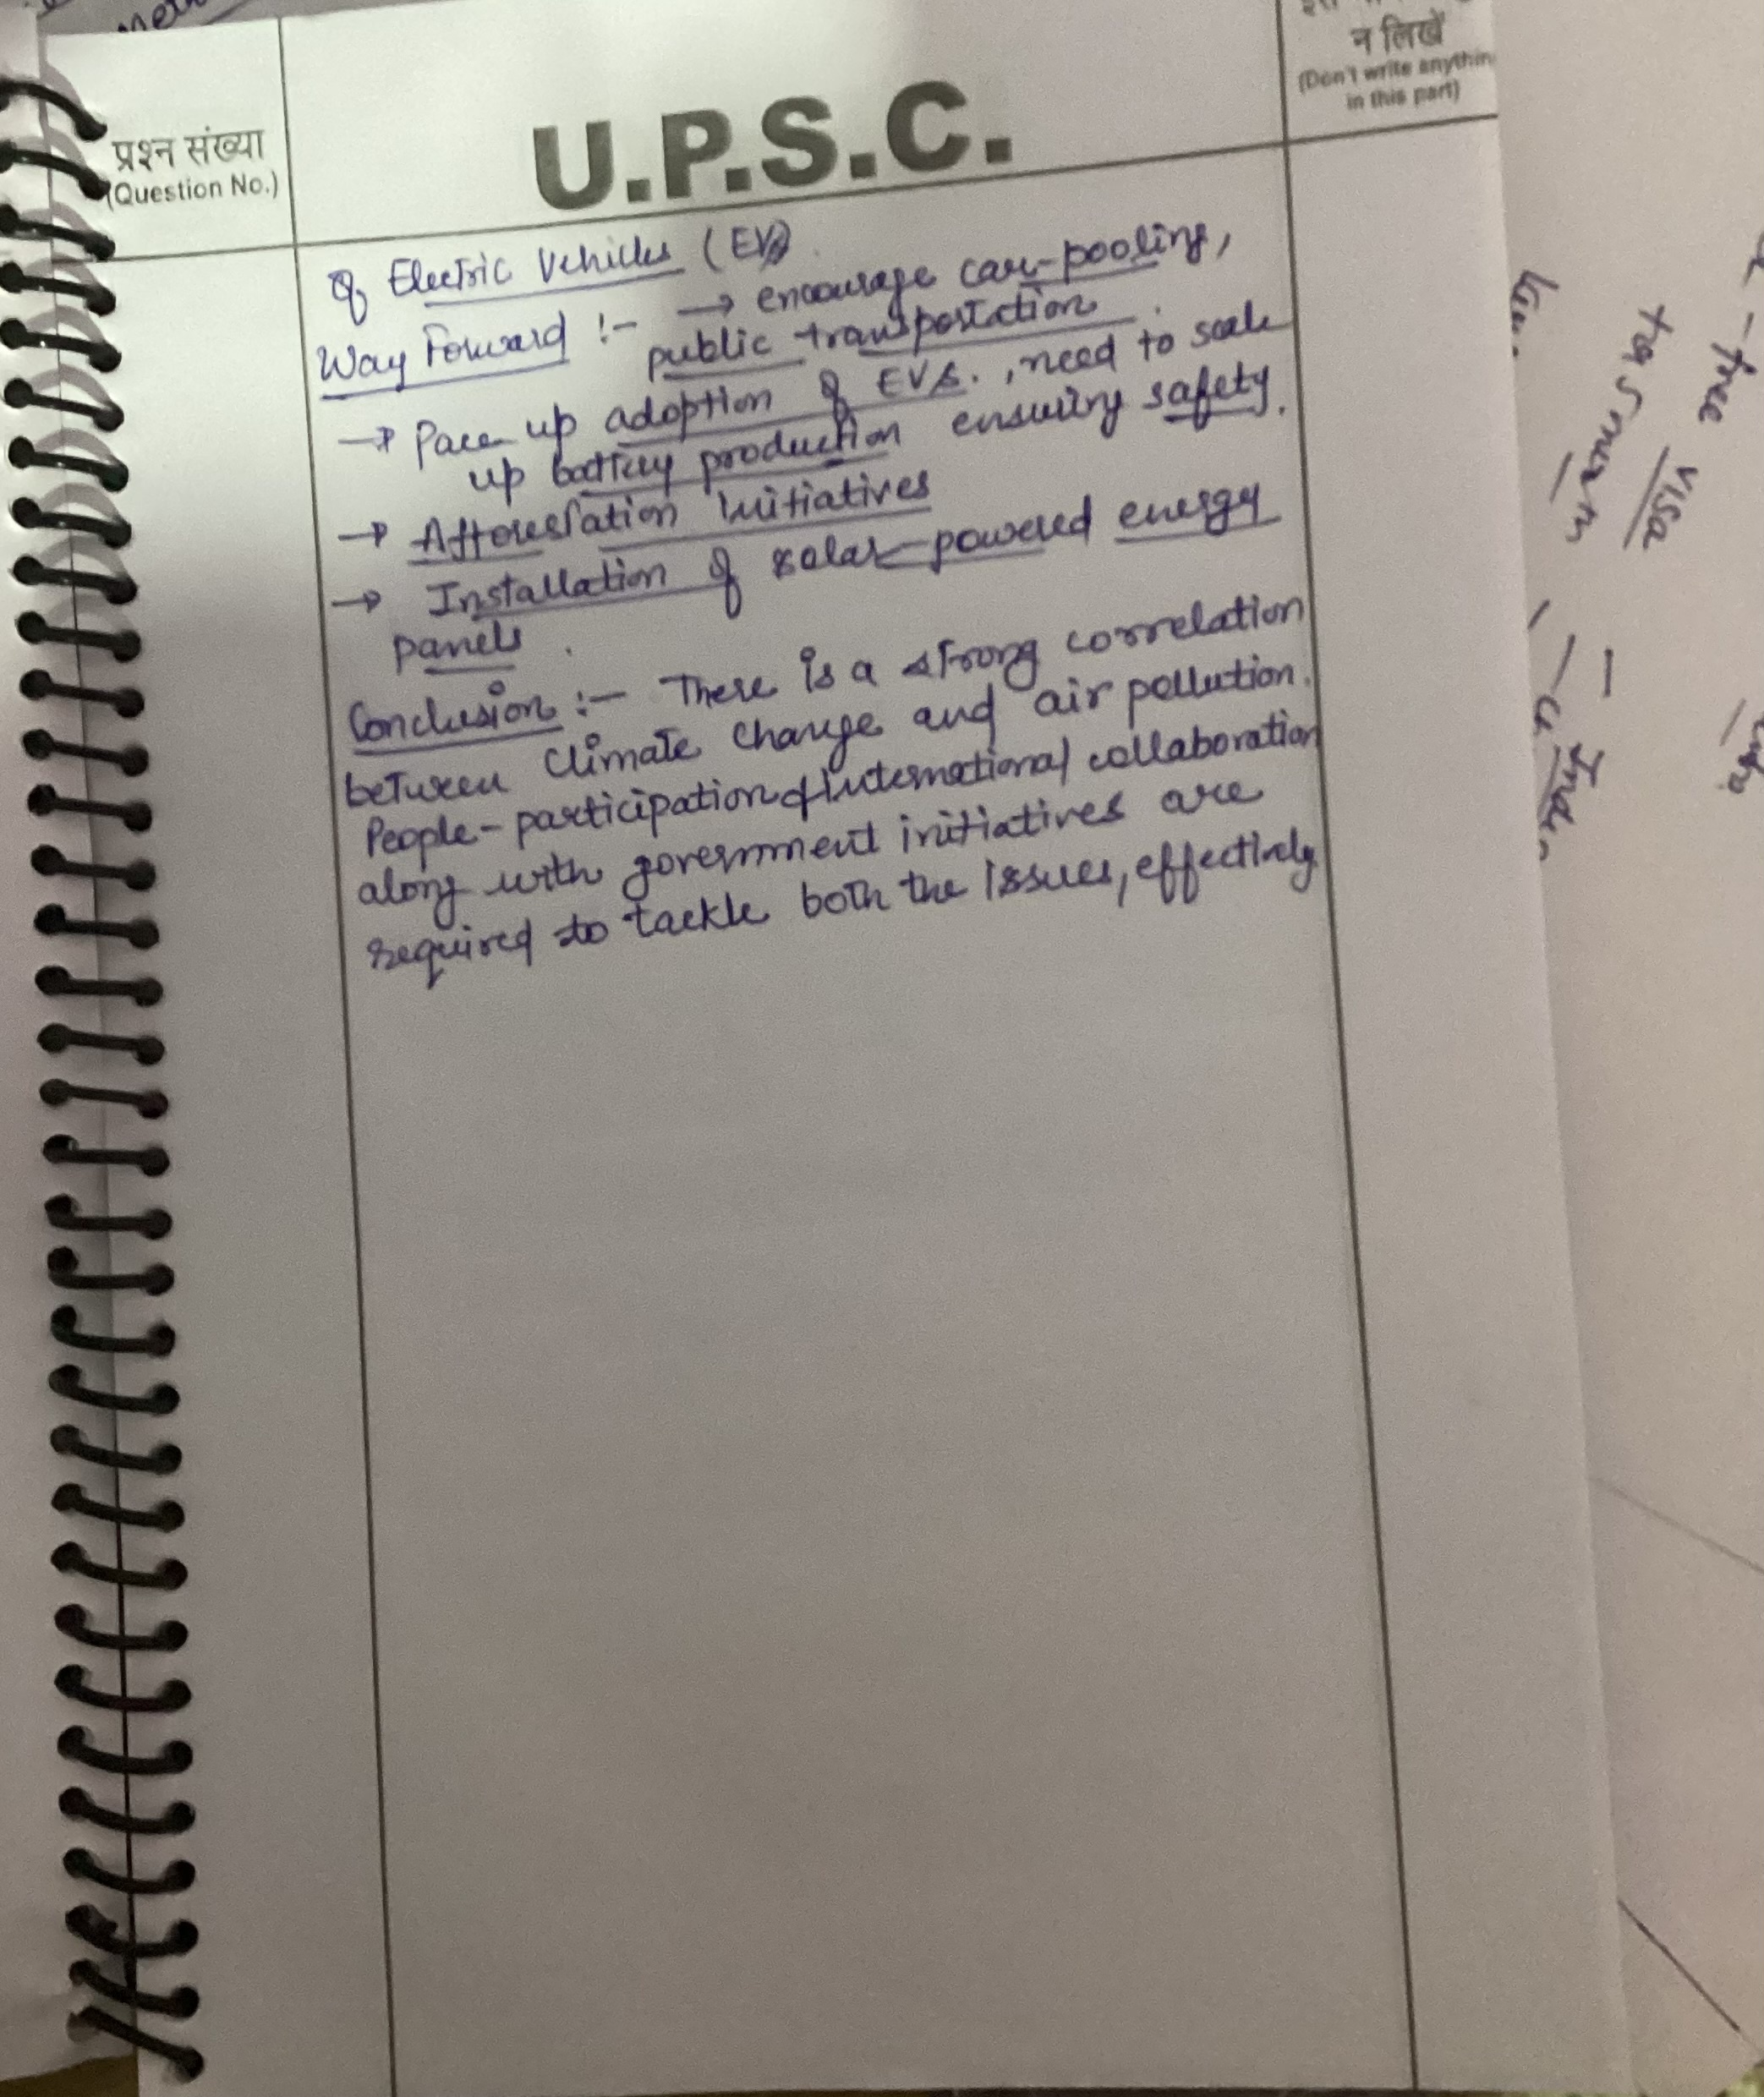 न लिखें
(Don't write anything
in this part)
प्रश्न संख्या
(Question No.)
U.P.S.C.
of Electric Vehicles (EVs)
Way Forward :- → encourage car-pooling,
public transportation.
→ Pace up adoption of EVs., need to scale
up battery production ensuring safety.
→ Afforestation initiatives
→ Installation of solar-powered energy
panels.
Conclusion :- There is a strong correlation
between Climate Change and air pollution.
People-participation & International collaboration
along with government initiatives are
required to tackle both the issues, effectively
- free
VISA